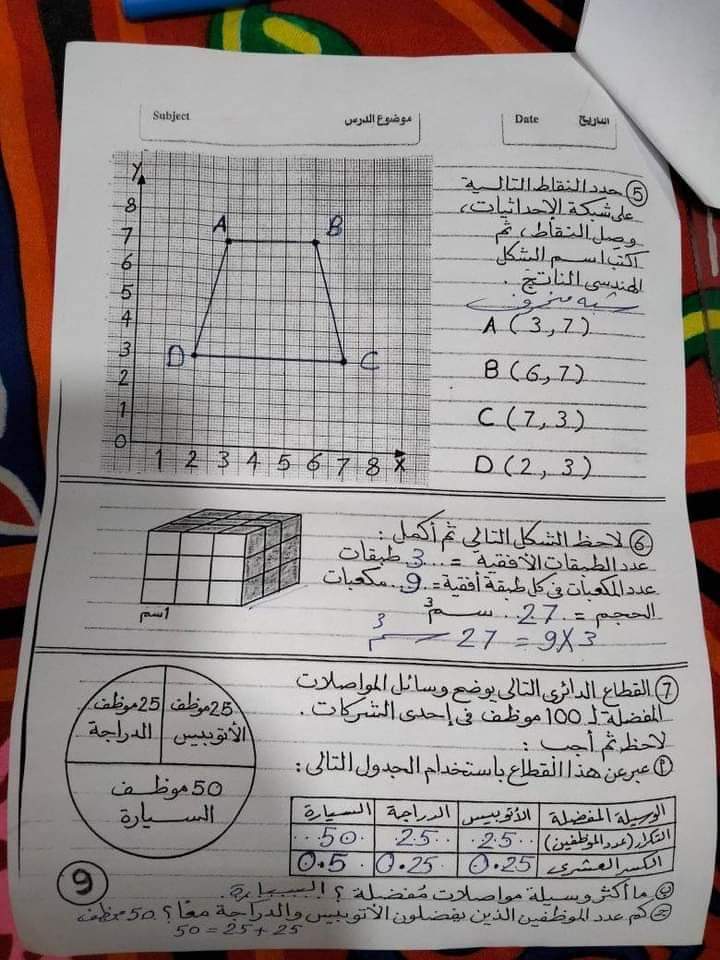 Subject موضوع الدرس
Date التاريخ
⑤ حدد النقاط التالية
على شبكة الإحداثيات،
وصل النقاط، ثم
اكتب اسم الشكل
الهندسى الناتج.
شبه منحرف
A (3,7)
B (6,7)
C (7,3)
D (2,3)
Y
8
7
6
5
4
3
2
1
0
1 2 3 4 5 6 7 8 X
A B
D C
⑥ لاحظ الشكل التالى ثم أكمل:
عدد الطبقات الأفقية = ..3.. طبقات
عدد المكعبات فى كل طبقة أفقية = ..9.. مكعبات
الحجم = ..27.. سم³
3×9 = 27 سم³
1سم
⑦ القطاع الدائرى التالى يوضح وسائل المواصلات
المفضلة لـ 100 موظف فى إحدى الشركات.
لاحظ ثم أجب:
25 موظف الأتوبيس
25 موظف الدراجة
50 موظف
السيارة
أ عبر عن هذا القطاع باستخدام الجدول التالى:
الوسيلة المفضلة الأتوبيس الدراجة السيارة
التكرار (عدد الموظفين) ..25.. ..25.. ..50..
الكسر العشرى 0.25 0.25 0.5
ب ما أكثر وسيلة مواصلات مُفضلة؟ السيارة.
ج كم عدد الموظفين الذين يفضلون الأتوبيس والدراجة معًا؟ 50 موظف
25 + 25 = 50
9